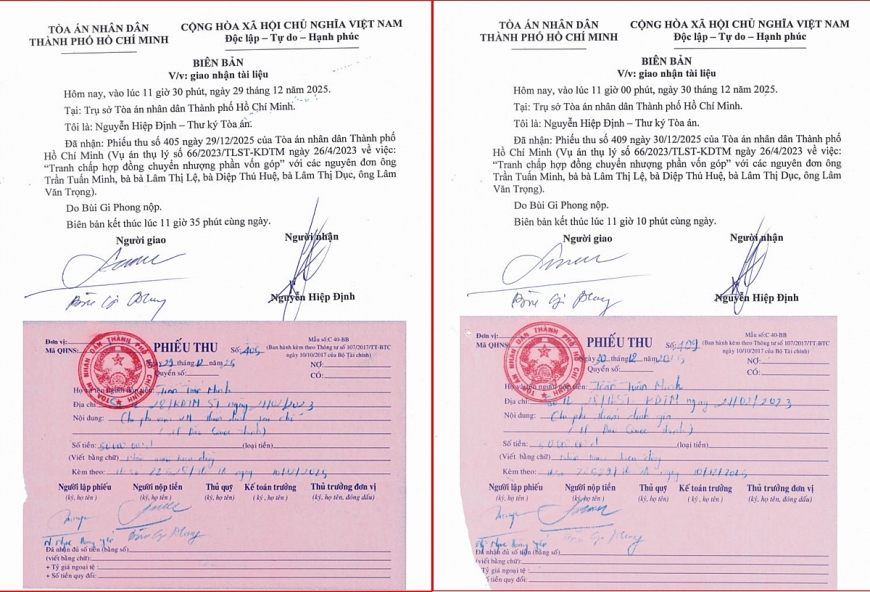 TÒA ÁN NHÂN DÂN
THÀNH PHỐ HỒ CHÍ MINH
CỘNG HÒA XÃ HỘI CHỦ NGHĨA VIỆT NAM
Độc lập – Tự do – Hạnh phúc
BIÊN BẢN
V/v: giao nhận tài liệu
Hôm nay, vào lúc 11 giờ 30 phút, ngày 29 tháng 12 năm 2025.
Tại: Trụ sở Tòa án nhân dân Thành phố Hồ Chí Minh.
Tôi là: Nguyễn Hiệp Định – Thư ký Tòa án.
Đã nhận: Phiếu thu số 405 ngày 29/12/2025 của Tòa án nhân dân Thành phố
Hồ Chí Minh (Vụ án thụ lý số 66/2023/TLST-KDTM ngày 26/4/2023 về việc:
“Tranh chấp hợp đồng chuyển nhượng phần vốn góp” với các nguyên đơn ông
Trần Tuấn Minh, bà bà Lâm Thị Lệ, bà Diệp Thú Huệ, bà Lâm Thị Dục, ông Lâm
Văn Trọng).
Do Bùi Gi Phong nộp.
Biên bản kết thúc lúc 11 giờ 35 phút cùng ngày.
Người giao
Người nhận
Bùi Gi Phong
Nguyễn Hiệp Định
Đơn vị:
Mã QHNS:
PHIẾU THU
Số: 405
Mẫu số:C 40-BB
(Ban hành kèm theo Thông tư số 107/2017/TT-BTC
ngày 10/10/2017 của Bộ Tài chính)
Ngày 29 tháng 12 năm 25
Quyển số:
NỢ:
CÓ:
TÒA ÁN NHÂN DÂN THÀNH PHỐ HỒ CHÍ MINH
Họ và tên người nộp tiền: Trần Tuấn Minh
Địa chỉ: 28/KDTM ST ngày 2023
Nội dung: Chi phí
Số tiền: (loại tiền)
(Viết bằng chữ)
Kèm theo: ngày 10/12/2025
Người lập phiếu
(ký, họ tên)
Người nộp tiền
(ký, họ tên)
Thủ quỹ
(ký, họ tên)
Kế toán trưởng
( ký, họ tên)
Thủ trưởng đơn vị
(ký, họ tên, đóng dấu)
Bùi Gi Phong
Đã nhận đủ số tiền (bằng số)
(viết bằng chữ):
+ Tỷ giá ngoại tệ :
+ Số tiền quy đổi:
TÒA ÁN NHÂN DÂN
THÀNH PHỐ HỒ CHÍ MINH
CỘNG HÒA XÃ HỘI CHỦ NGHĨA VIỆT NAM
Độc lập – Tự do – Hạnh phúc
BIÊN BẢN
V/v: giao nhận tài liệu
Hôm nay, vào lúc 11 giờ 00 phút, ngày 30 tháng 12 năm 2025.
Tại: Trụ sở Tòa án nhân dân Thành phố Hồ Chí Minh.
Tôi là: Nguyễn Hiệp Định – Thư ký Tòa án.
Đã nhận: Phiếu thu số 409 ngày 30/12/2025 của Tòa án nhân dân Thành phố
Hồ Chí Minh (Vụ án thụ lý số 66/2023/TLST-KDTM ngày 26/4/2023 về việc:
“Tranh chấp hợp đồng chuyển nhượng phần vốn góp” với các nguyên đơn ông
Trần Tuấn Minh, bà bà Lâm Thị Lệ, bà Diệp Thú Huệ, bà Lâm Thị Dục, ông Lâm
Văn Trọng).
Do Bùi Gi Phong nộp.
Biên bản kết thúc lúc 11 giờ 10 phút cùng ngày.
Người giao
Người nhận
Bùi Gi Phong
Nguyễn Hiệp Định
Đơn vị:
Mã QHNS:
PHIẾU THU
Số: 409
Mẫu số:C 40-BB
(Ban hành kèm theo Thông tư số 107/2017/TT-BTC
ngày 10/10/2017 của Bộ Tài chính)
Ngày 30 tháng 12 năm 2025
Quyển số:
NỢ:
CÓ:
TÒA ÁN NHÂN DÂN THÀNH PHỐ HỒ CHÍ MINH
Họ và tên người nộp tiền: Trần Tuấn Minh
Địa chỉ: KDTM ngày 2023
Nội dung: Chi phí thẩm định giá
Số tiền: (loại tiền)
(Viết bằng chữ)
Kèm theo: ngày 10/12/2025
Người lập phiếu
(ký, họ tên)
Người nộp tiền
(ký, họ tên)
Thủ quỹ
(ký, họ tên)
Kế toán trưởng
( ký, họ tên)
Thủ trưởng đơn vị
(ký, họ tên, đóng dấu)
Bùi Gi Phong
Đã nhận đủ số tiền (bằng số)
(viết bằng chữ):
+ Tỷ giá ngoại tệ :
+ Số tiền quy đổi: